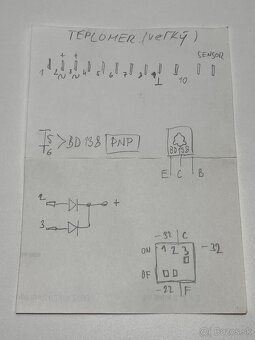 TEPLOMER (veľký)
+ +
SENSOR
1 2 3 4 5 6 7 8 9 10
T5
T6 > BD 138 PNP
BD138
E C B
2
+
3
-32 C
ON 1 2 3 -32
OF
-22 F
bazos.sk